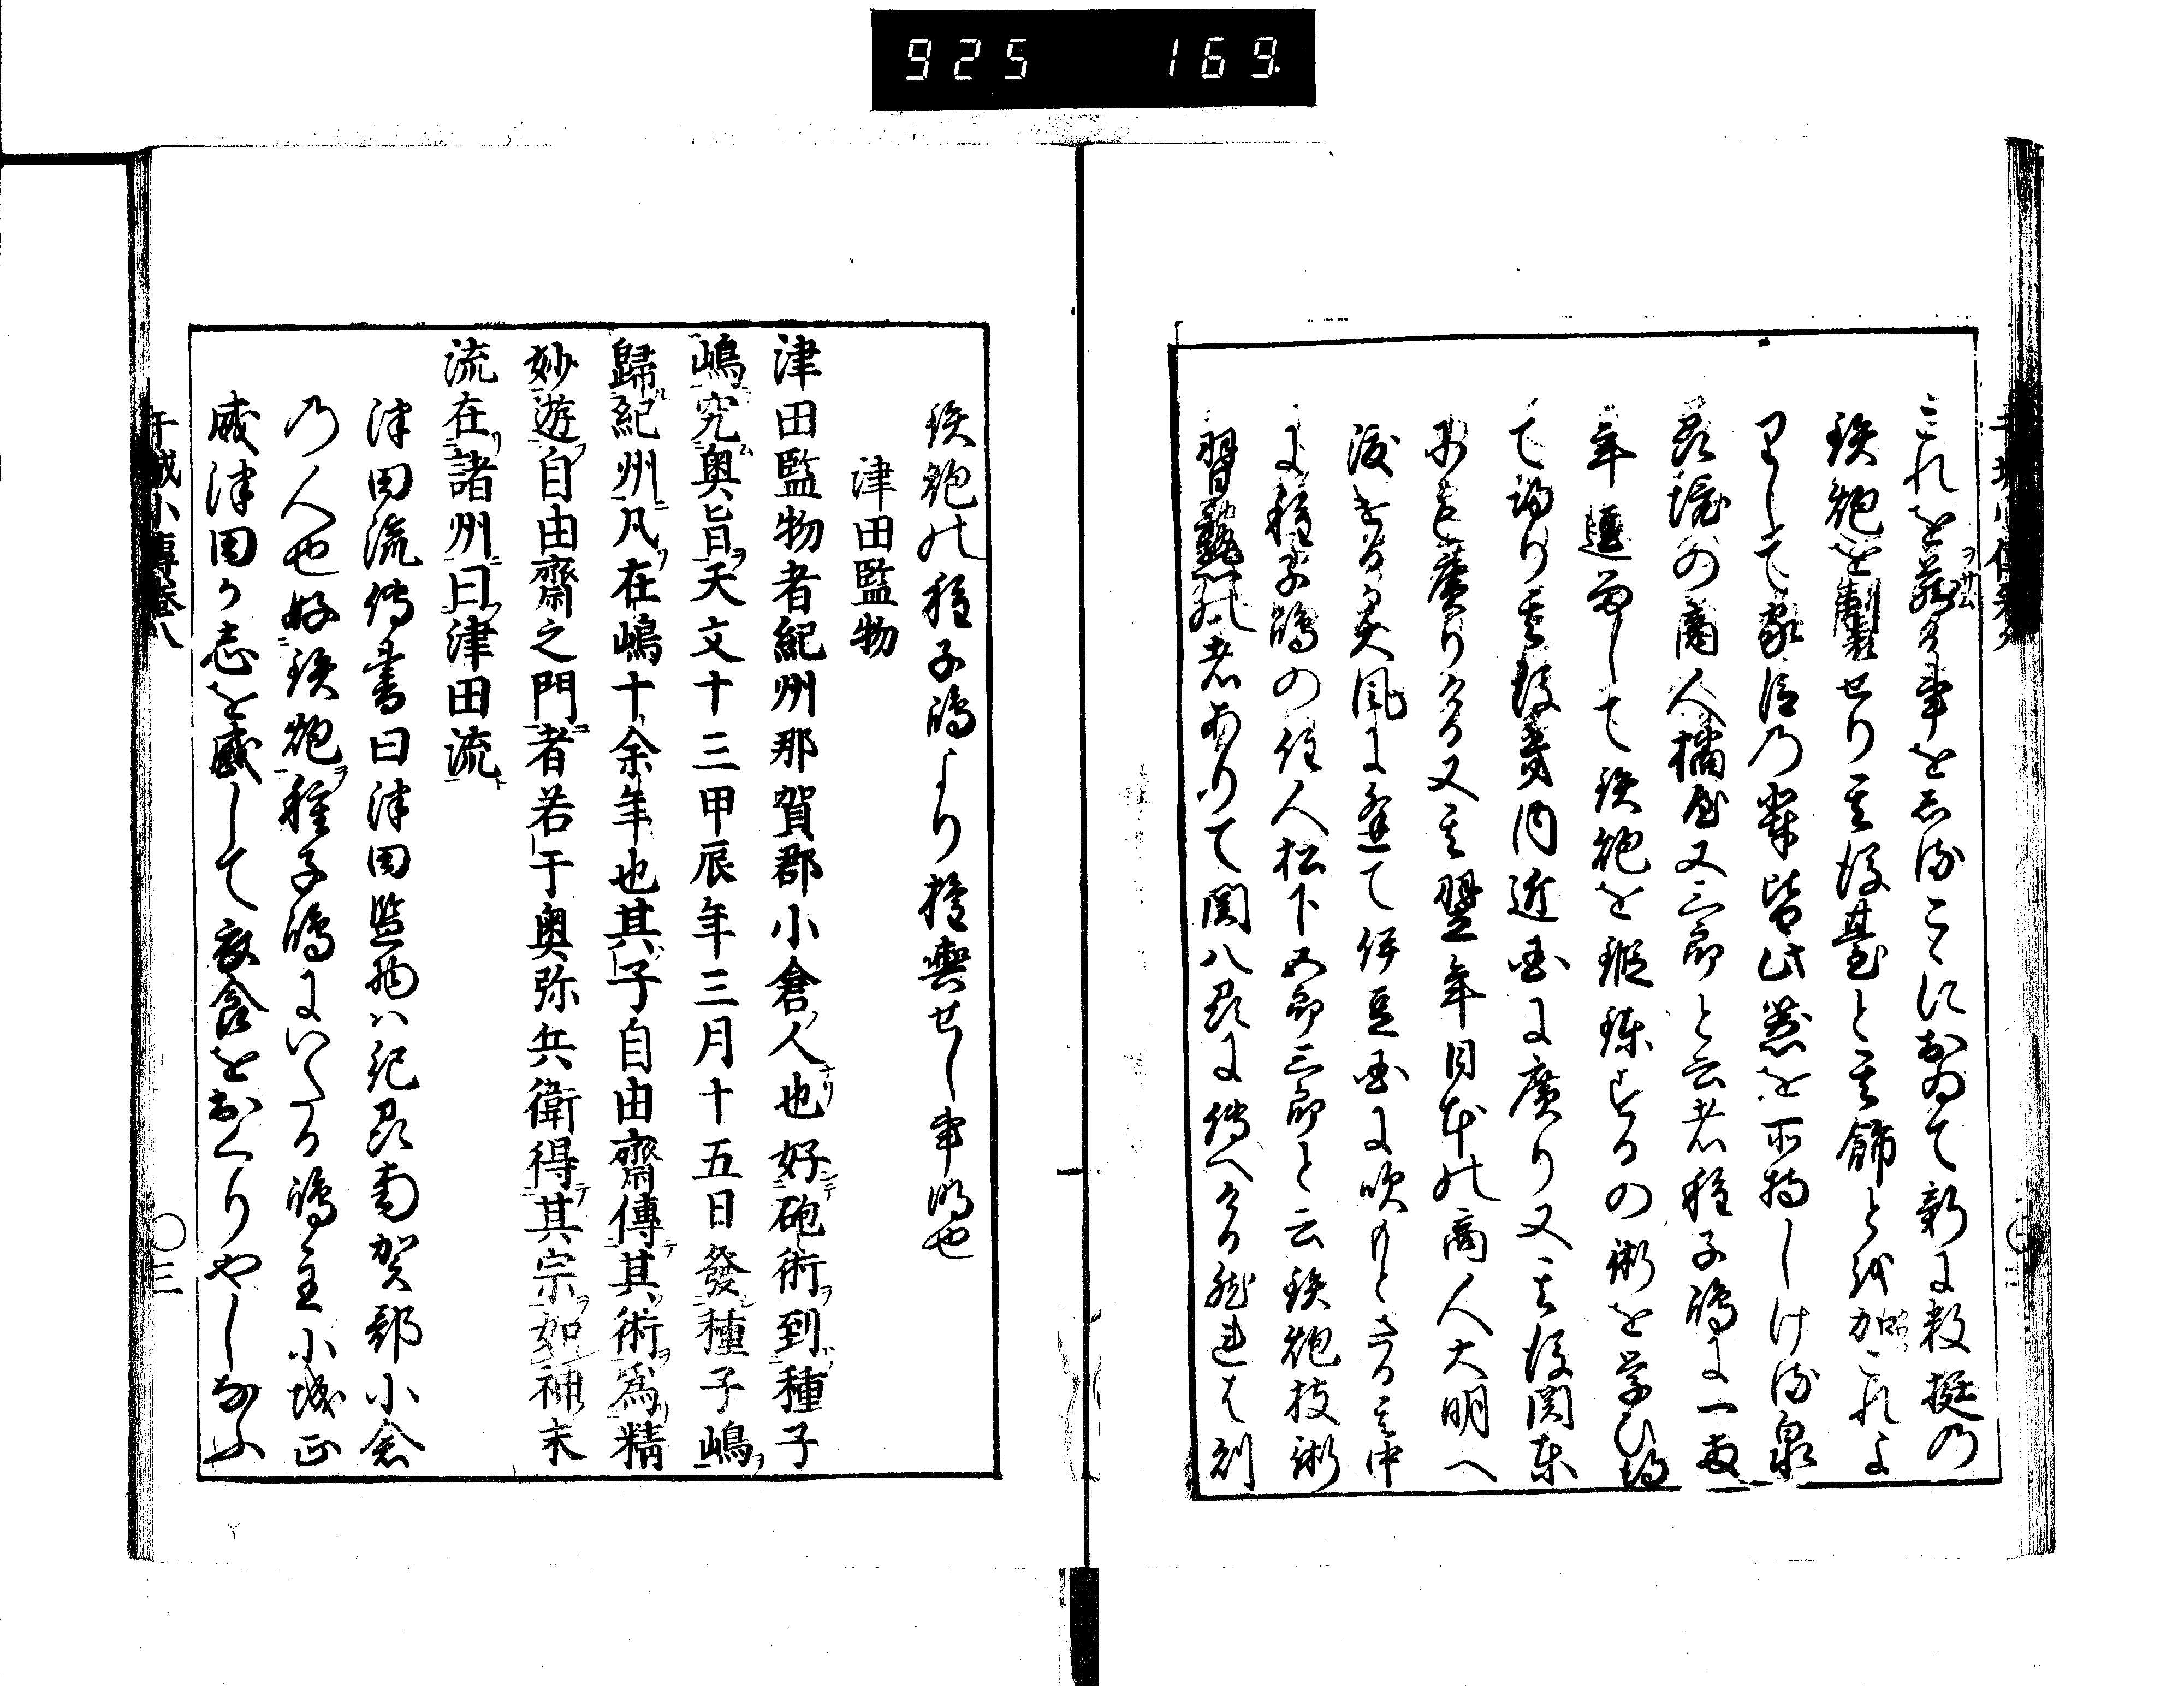 925 169.
これを蔵る事をしるこゝにおゐて新に数挺の
鉄炮を製せり其後臺と其飾とを加これよ
りして家臣乃輩皆此器を所持しける泉
州堺の商人橘屋又三郎と云者種子嶋に一両
年逗留して鉄炮を鍛錬するの術を学ひ得
て帰り其後畿内近国に廣り又其後関東
にも廣りける又其翌年日本の商人大明へ
渡ける
風に逢て伊豆国に吹
其中
に種子嶋の住人松下五郎三郎と云鉄炮技術
習熟の者ありて関八州に傳へける然ははしめ
鉄炮の種子嶋より権輿せし事明也
津田監物
津田監物者紀州那賀郡小倉人也好砲術到種子
嶋究奥旨天文十三甲辰年三月十五日發種子嶋
歸紀州凡在嶋十余年也其子自由齋傳其術爲精
妙遊自由齋之門者若干奥弥兵衛得其宗如神末
流在諸州曰津田流
津田流傳書曰津田監物ハ紀州那賀郡小倉
乃人也好鉄炮種子嶋にいたる嶋主小城正
感津田か志を感して衣食をおくりやしなふ
干城小傳巻八
〇三